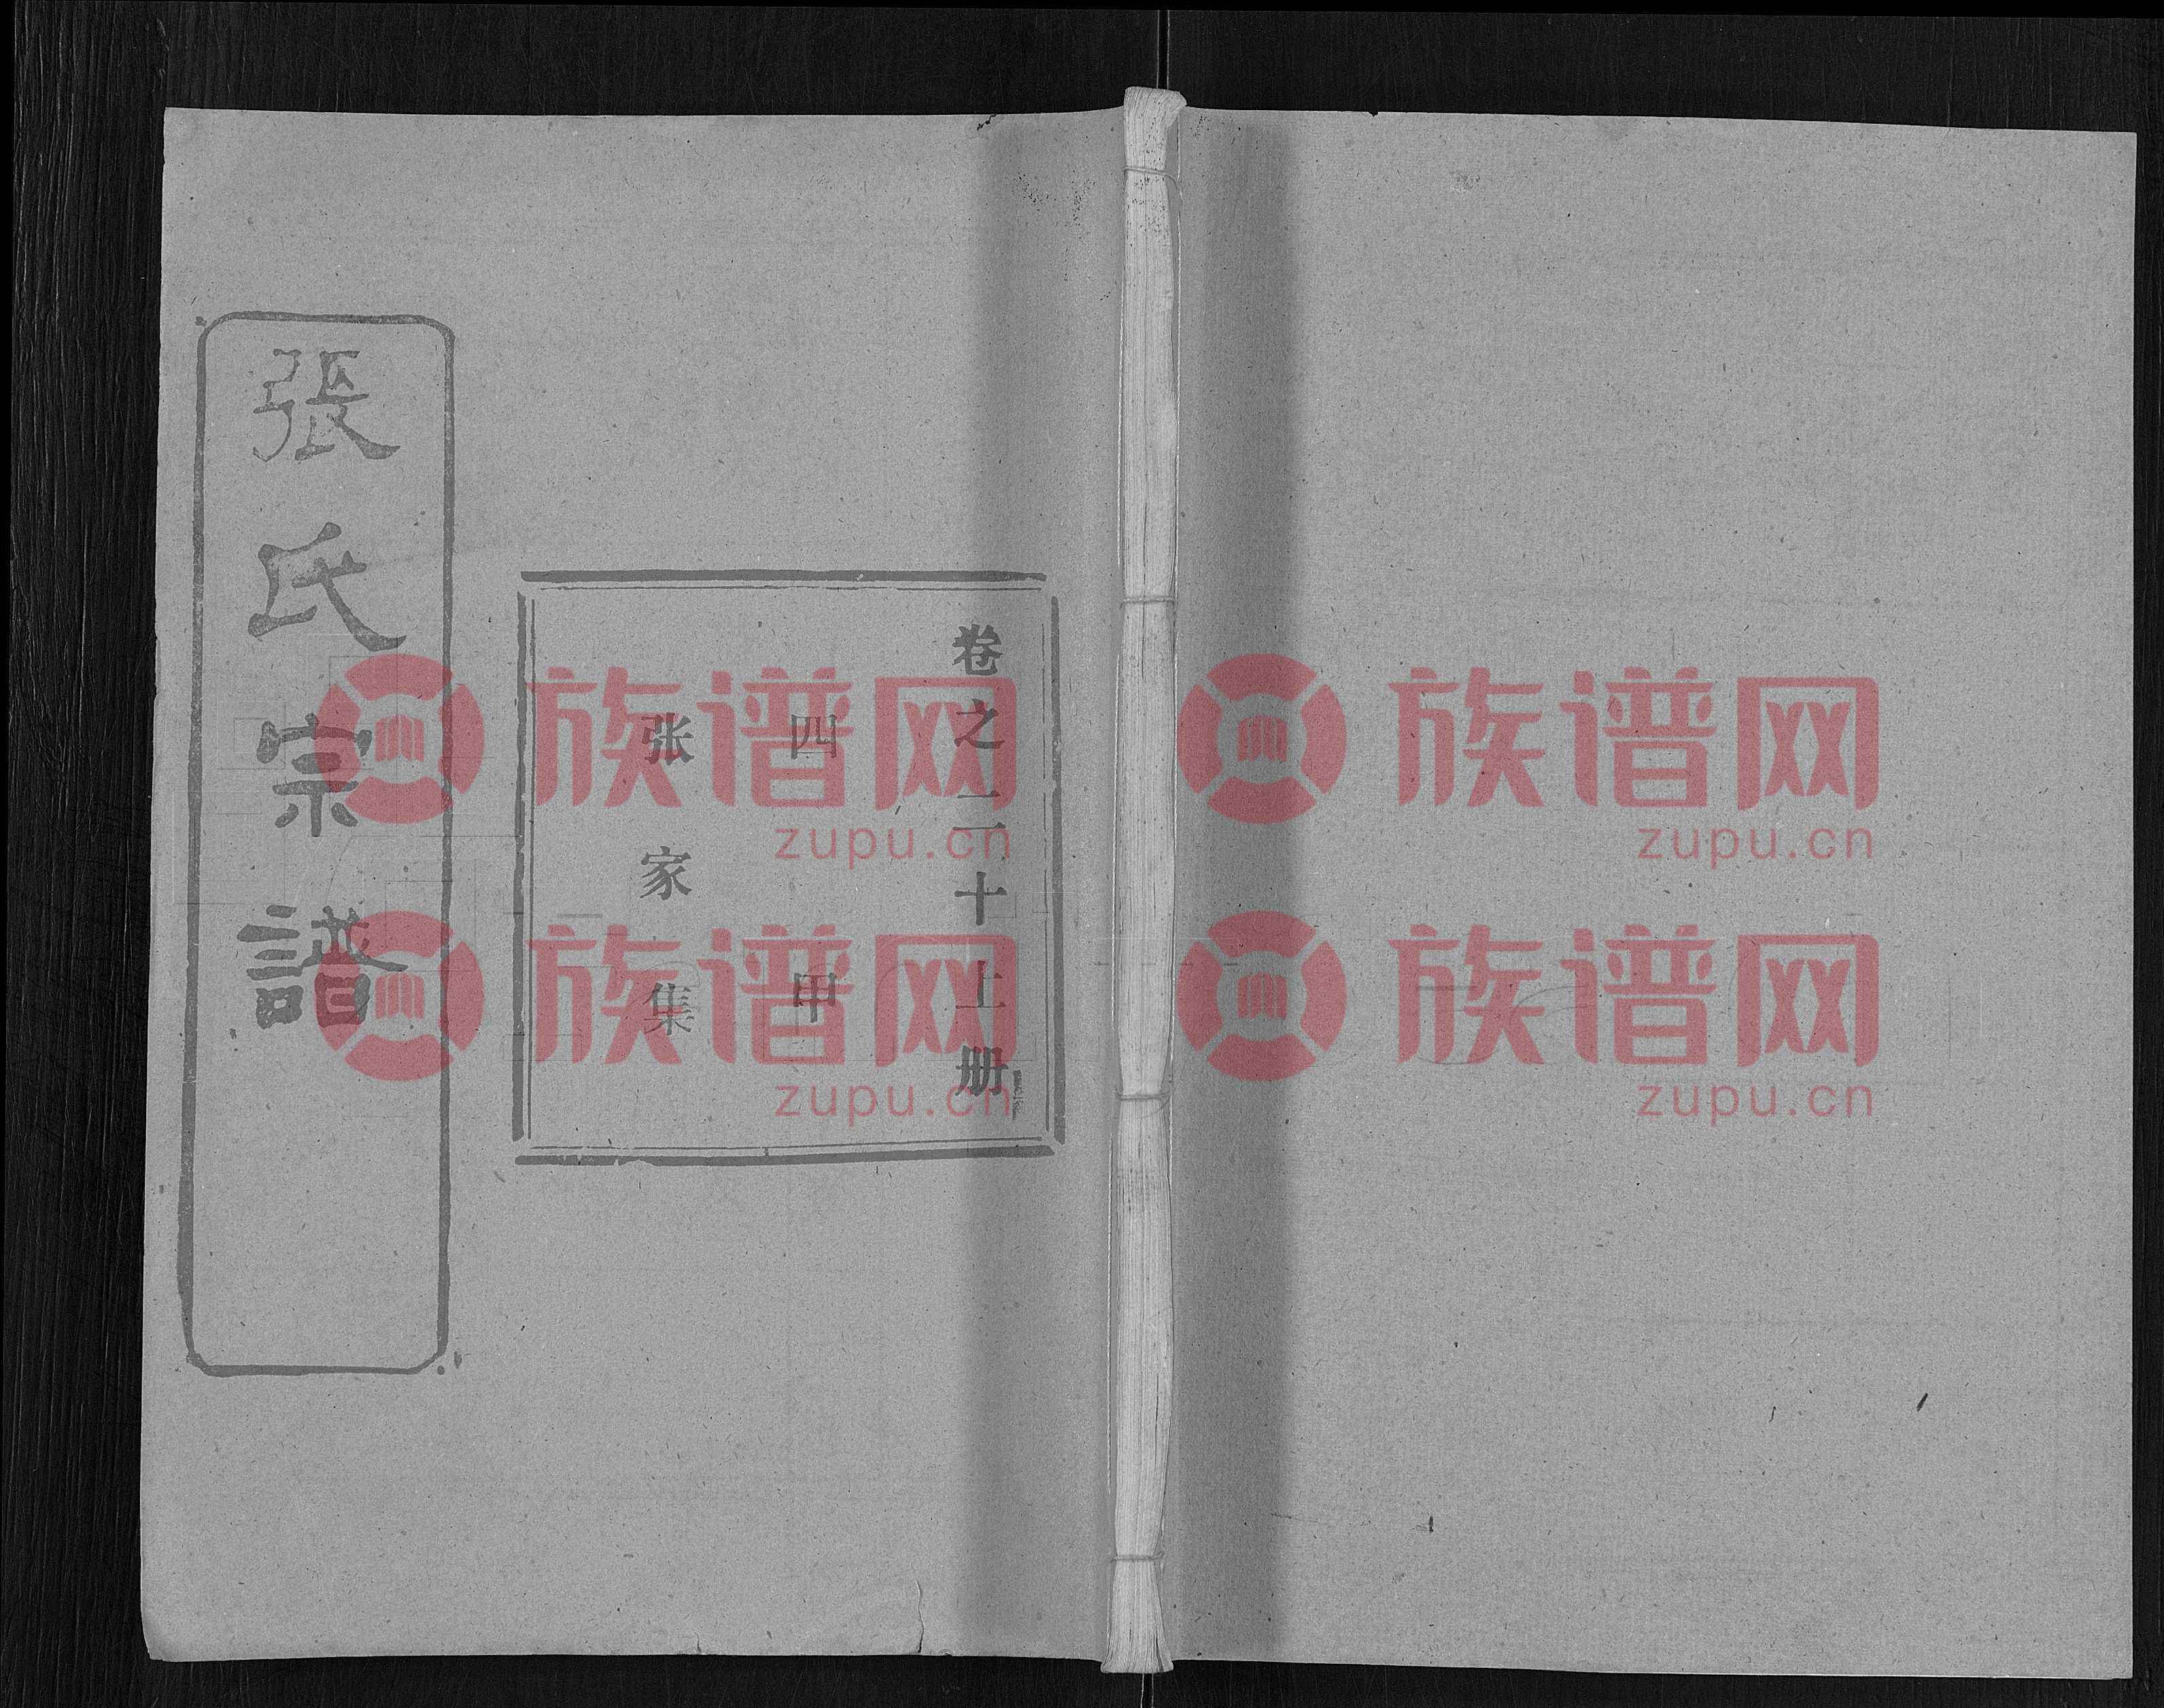 張氏宗譜
卷之二十上册
四甲
张家集
族谱网
zupu.cn
族谱网
zupu.cn
族谱网
zupu.cn
族谱网
zupu.cn